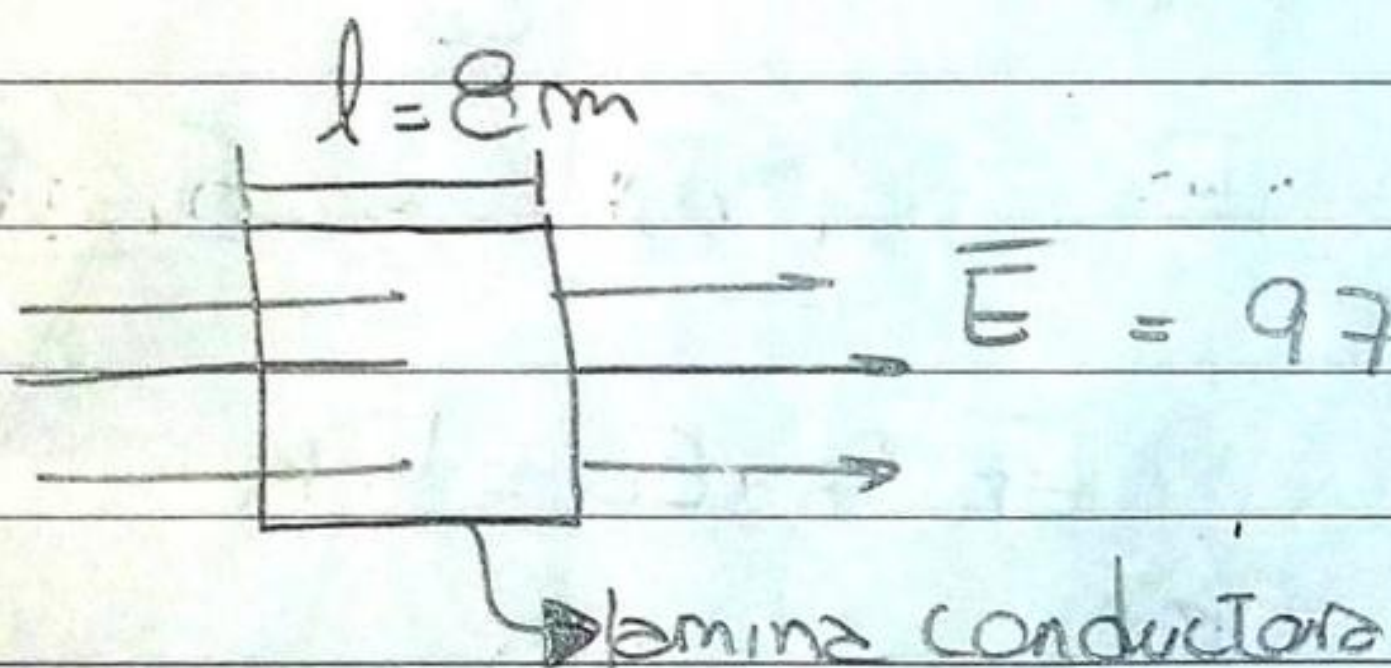 l = 8m
E = 97
lamina conductora